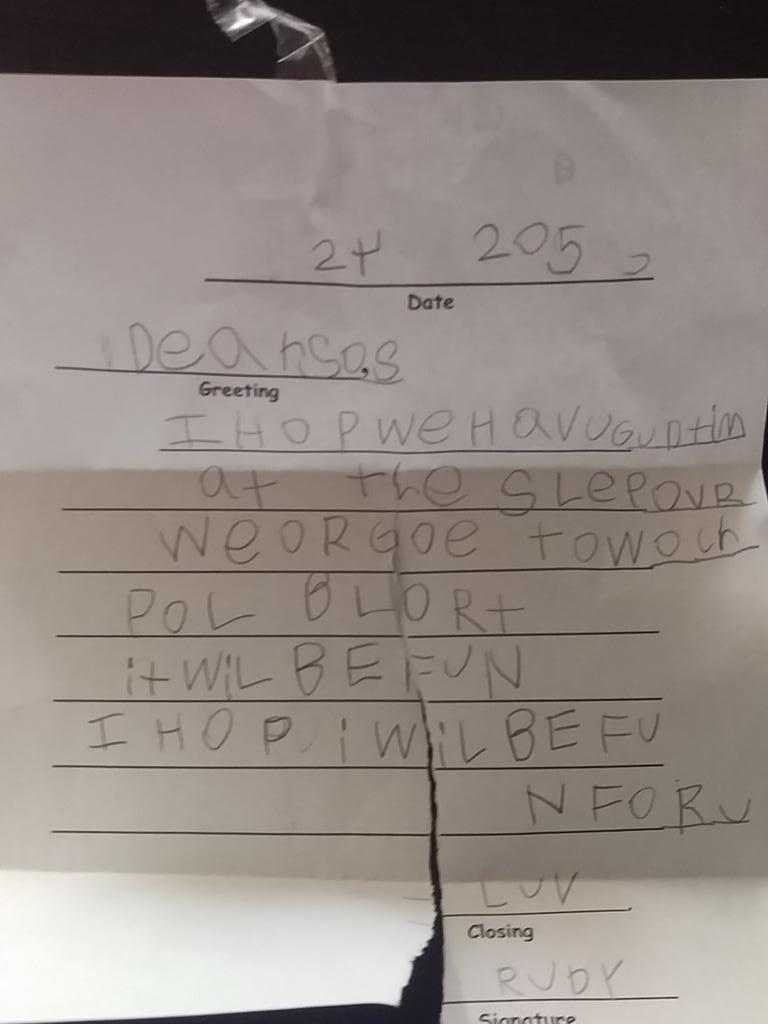 24 205
Date
DeAr SoS
Greeting
I HOP WeHAVUGUDtim
at the SLePOVR
WeORGOe toWOch
POL BLORt
itWiL BE FUN
I HOP iWiL BE FU
N FORU
LUV
Closing
RUDY
Signature